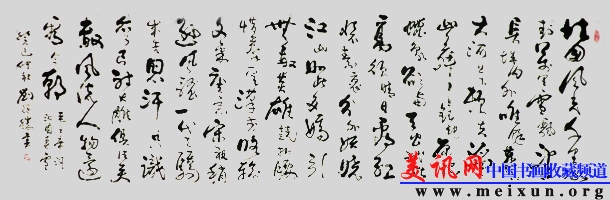 北国风光千里冰
封万里雪飘望
长城内外唯馀莽
大河上下顿失滔
山舞银蛇原驰
蜡象欲与天公试比
高须晴日看红
装素裹分外妖娆
江山如此多娇引
无数英雄竞折腰
惜秦皇汉武略输
文采唐宗宋祖稍
逊风骚一代天骄
成吉思汗只识
弯弓射大雕俱往矣
数风流人物还
看今朝
毛主席词
沁园春雪
癸巳仲秋
美讯网
中国书画收藏频道
www.meixun.org